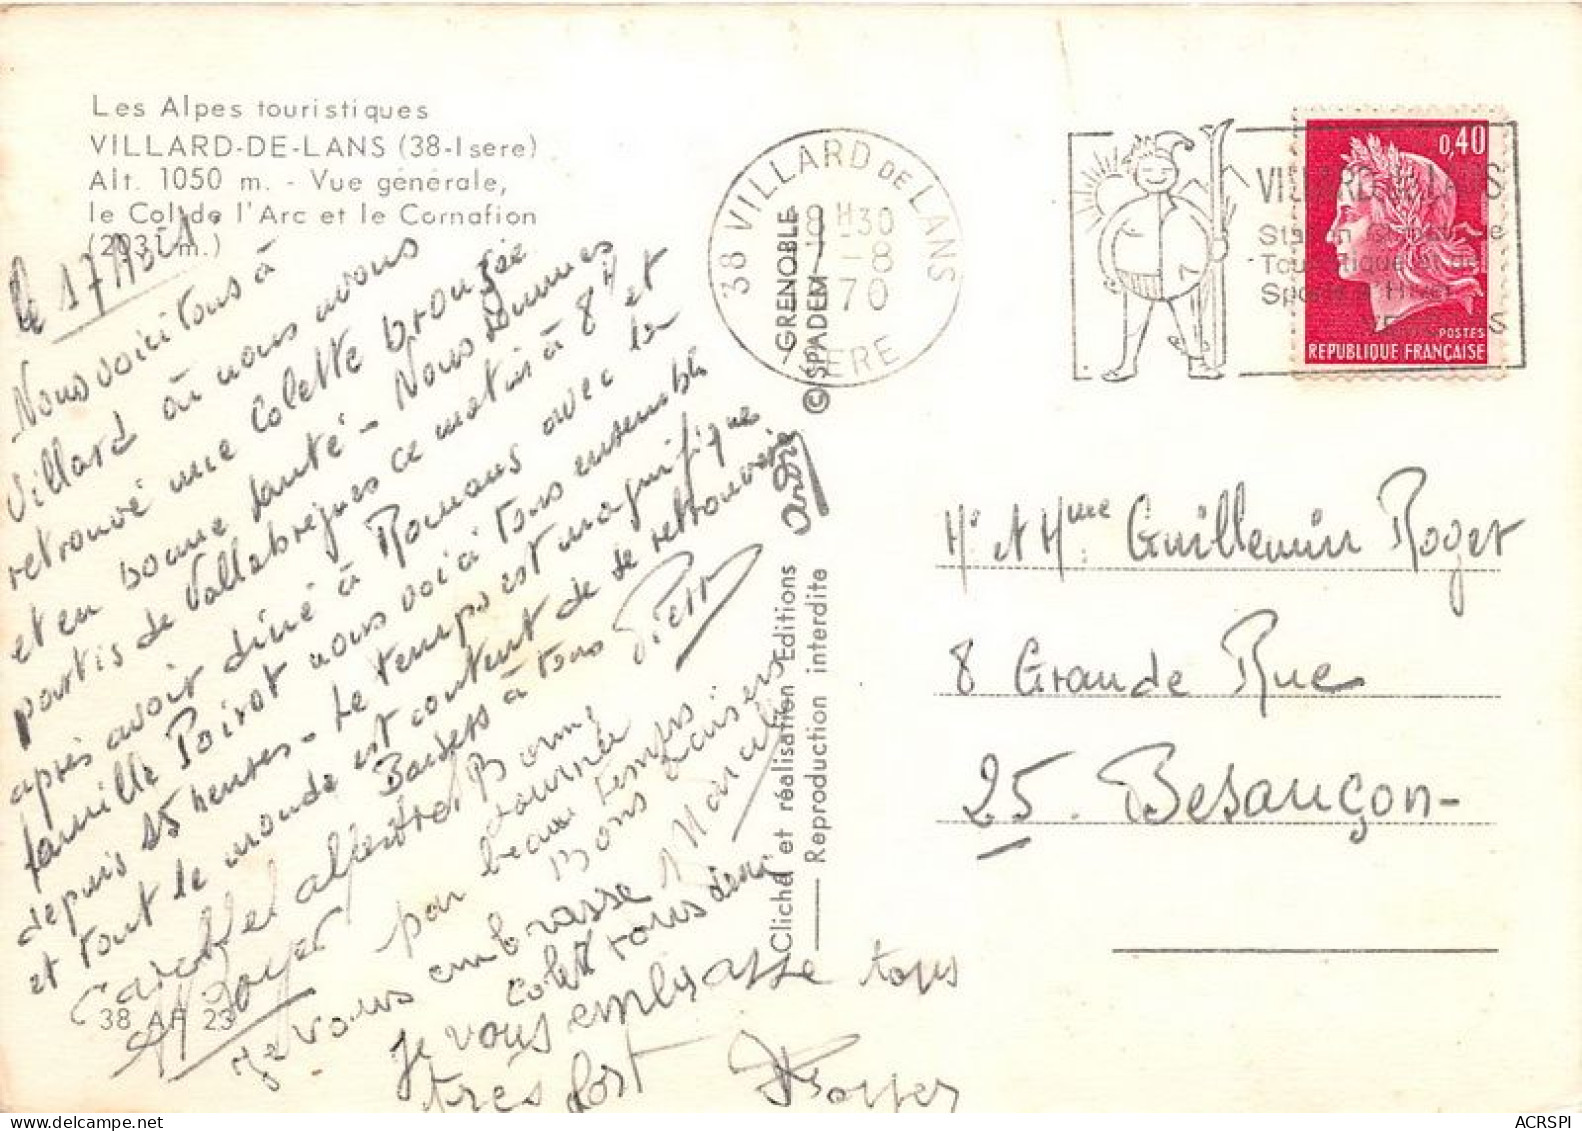 Les Alpes touristiques
VILLARD-DE-LANS (38-Isère)
Alt. 1050 m. - Vue générale,
le Col de l'Arc et le Cornafion
(2031 m.)
le 17 Août
Nous voici tous à
Villard où nous avons
retrouvé une Colette bronzée
et en bonne santé - Nous sommes
partis de Vallabrègues ce matin à 8H et
après avoir diné à Romans avec la
famille Poirot nous voici tous ensemble
depuis 15 heures - Le temps est magnifique
et tout le monde est content de se retrouver
Baisers à tous Pierre
affectrd Bonne
journée
par beau temps
Bons baisers
Royer
Je vous embrasse
Colette
Je vous embrasse tous
très fort
Royer
38 AF 23
Cliché et réalisation Editions André
Reproduction interdite
GRENOBLE
© SPADEM
38 VILLARD DE LANS
18H30
-8
70
ISERE
VILLARD DE LANS
Station Climatique
Touristique et de
Sports d'Hiver
0,40
POSTES
REPUBLIQUE FRANÇAISE
Mr et Mme Guillemin Roger
8 Grande Rue
25. Besançon-
ACRSPI